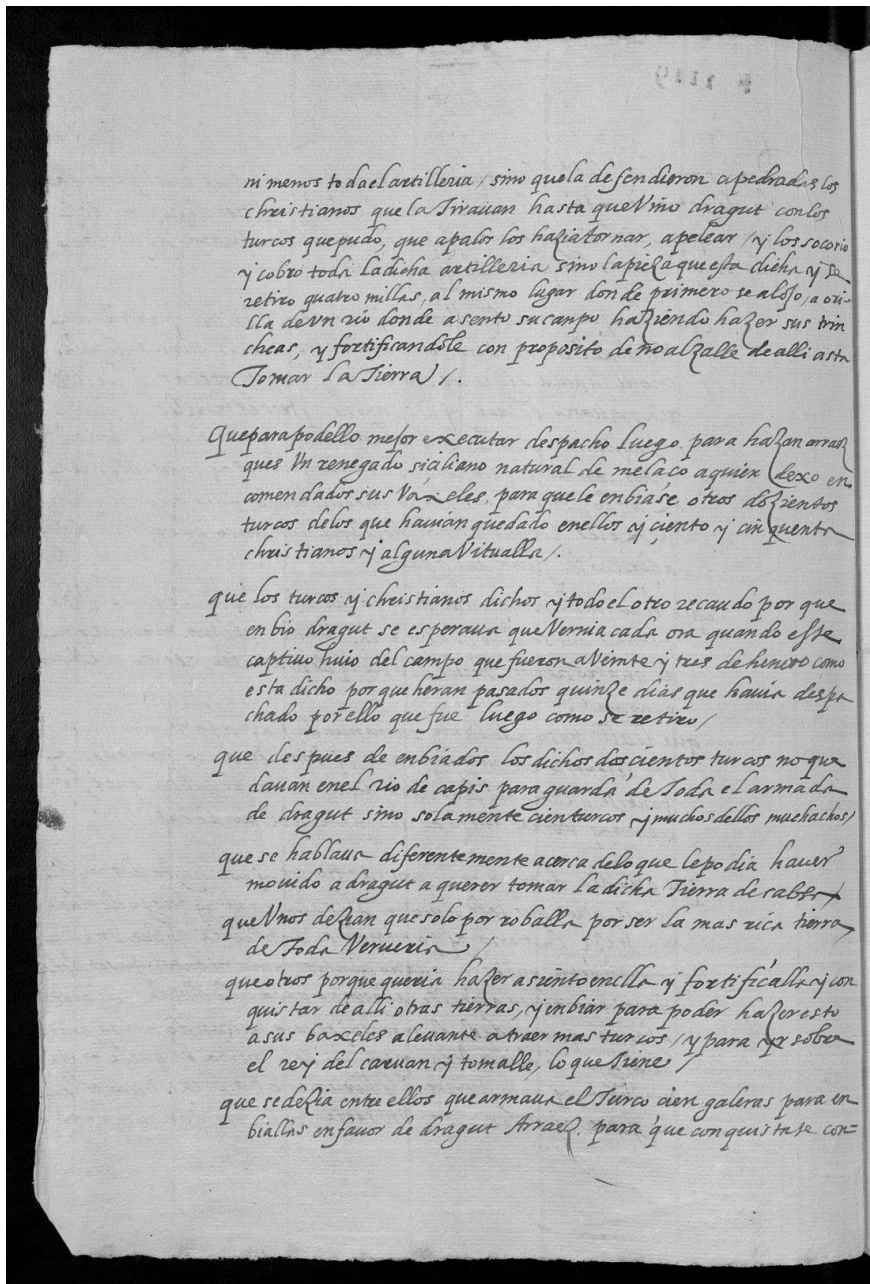 ni menos toda el artilleria / sino que la defendieron a pedradas los
christianos que la Tirauan hasta que Vino dragut con los
turcos que pudo, que a palos los hazia tornar, a pelear / y los socorio
y cobro toda la dicha artilleria sino la pieza que esta dicha y se
retiro quatro millas, al mismo lugar donde primero se alojo, a ori-
lla de Un rio donde asento su canpo haziendo hazer sus trin
cheas, y fortificandole con proposito de no alzalle de alli asta
Tomar la Tierra /.
Que para podello mejor executar despacho luego para hazan arraez
ques Un renegado siciliano natural de melaço a quien dexo en
comendados sus Vaxeles, para que le enbiase otros dozientos
turcos delos que hauian quedado enellos y ciento y cinquenta
christianos y alguna Vitualla /.
que los turcos y christianos dichos y todo el otro recaudo por que
enbio dragut se esperaua que Vernia cada ora quando este
captiuo huio del campo que fueron a Veinte y tres de henero como
esta dicho porque heran pasados quinze dias que hauia despa
chado por ello que fue luego como se retiro /
que despues de enbiados los dichos doscientos turcos no que
dauan enel rio de capis para guarda de Toda el armada
de dragut sino solamente cien turcos y muchos dellos muchachos /
que se hablaua diferentemente acerca delo que le podia hauer
mouido a dragut a querer tomar la dicha Tierra de cabsa
que Unos dezian que solo por roballa por ser la mas rica tierra
de Toda Verueria /
que otros porque queria hazer asiento enella y fortificalla y con
quistar de alli otras tierras, y enbiar para poder hazer esto
a sus baxeles a leuante a traer mas turcos / y para yr sobre
el rey del caruan y tomalle, lo que Tiene /
que se dezia entre ellos que armaua el Turco cien galeras para en
biallas en fauor de dragut Arraez. para que conquistase con=